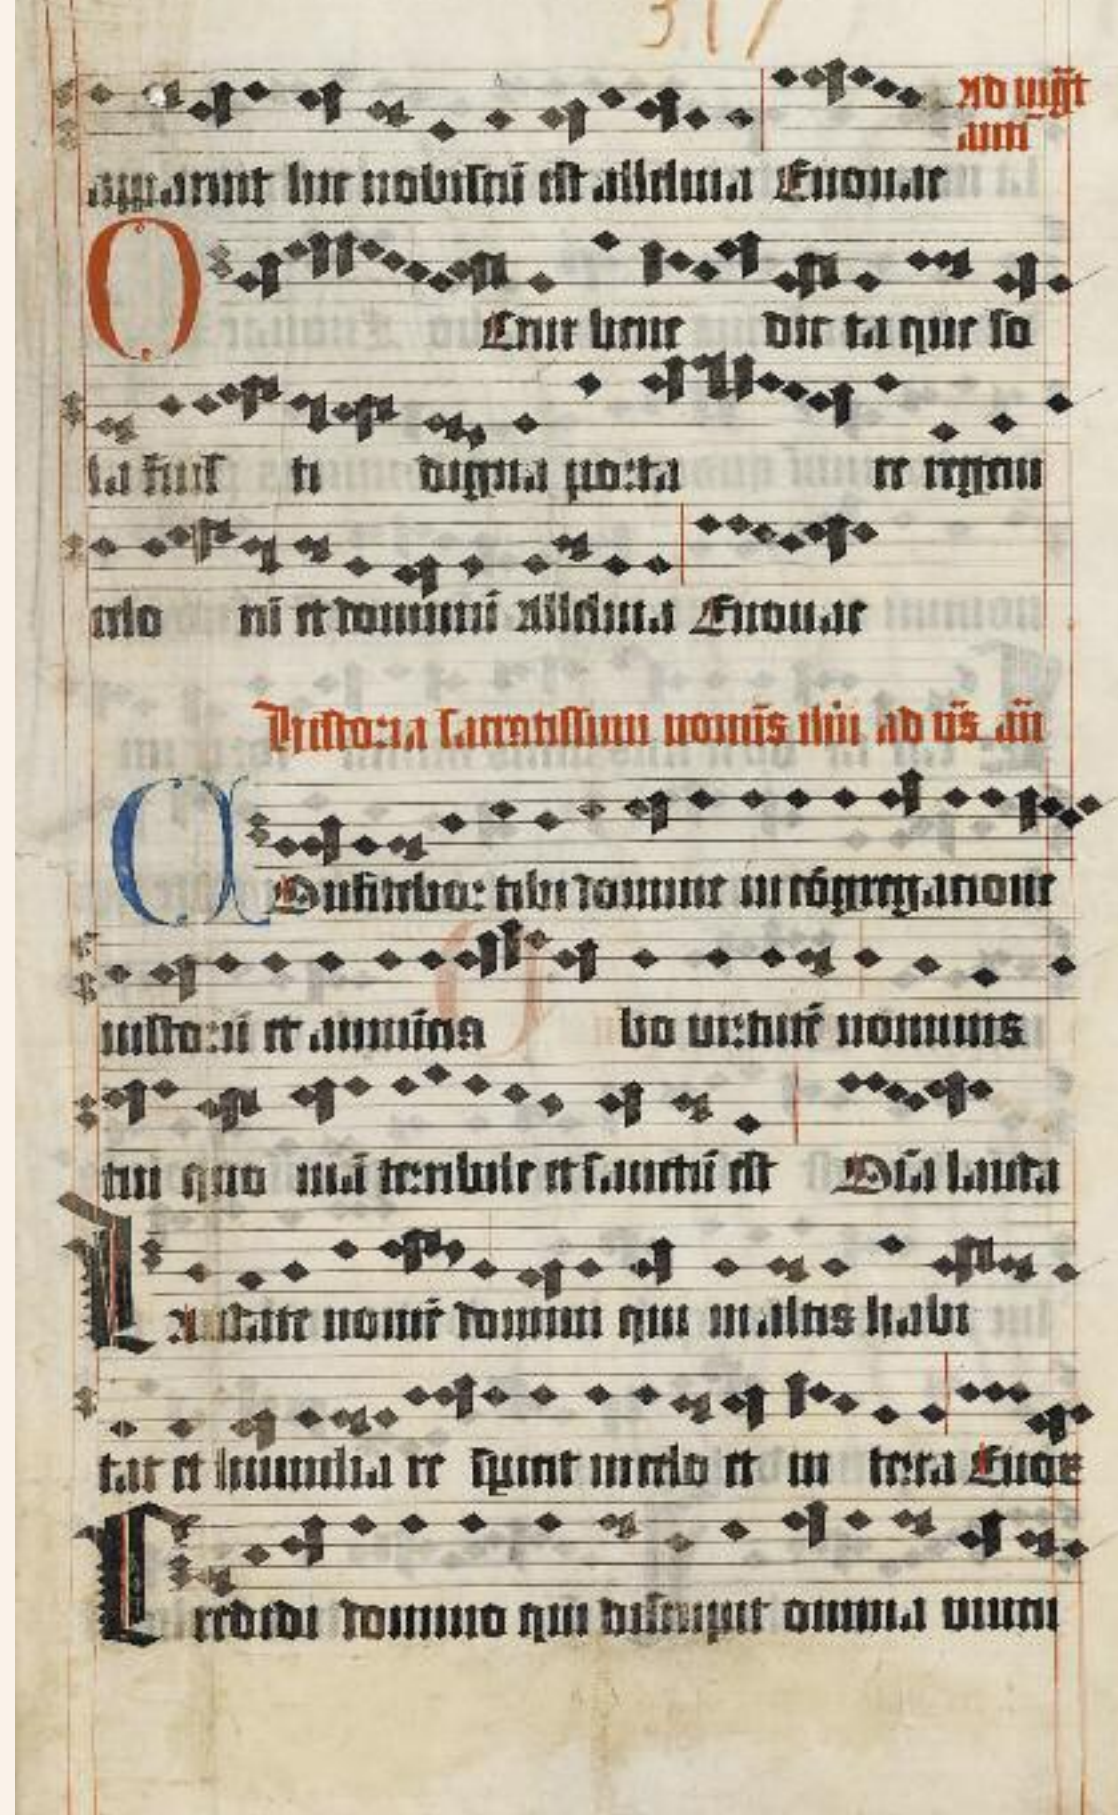 317
apparuit hic nobiscū est alleluia Euouae
O Cene bene dic ta que so
la fuis ti digna porta re regem
celo nū et dominū Alleluia Euouae
Historia sacratissimi
COnfitebor tibi domine in cōgregatione
iustorū et annūcia bo virtutē nominis
tui quo niā terribile et sanctū est Dn̄ā lauda
Laudate nomē domini qui in altis habi
tat et humilia re spicit in celo et in terra Euoe
Credidi domino qui disrupit omnia vincu